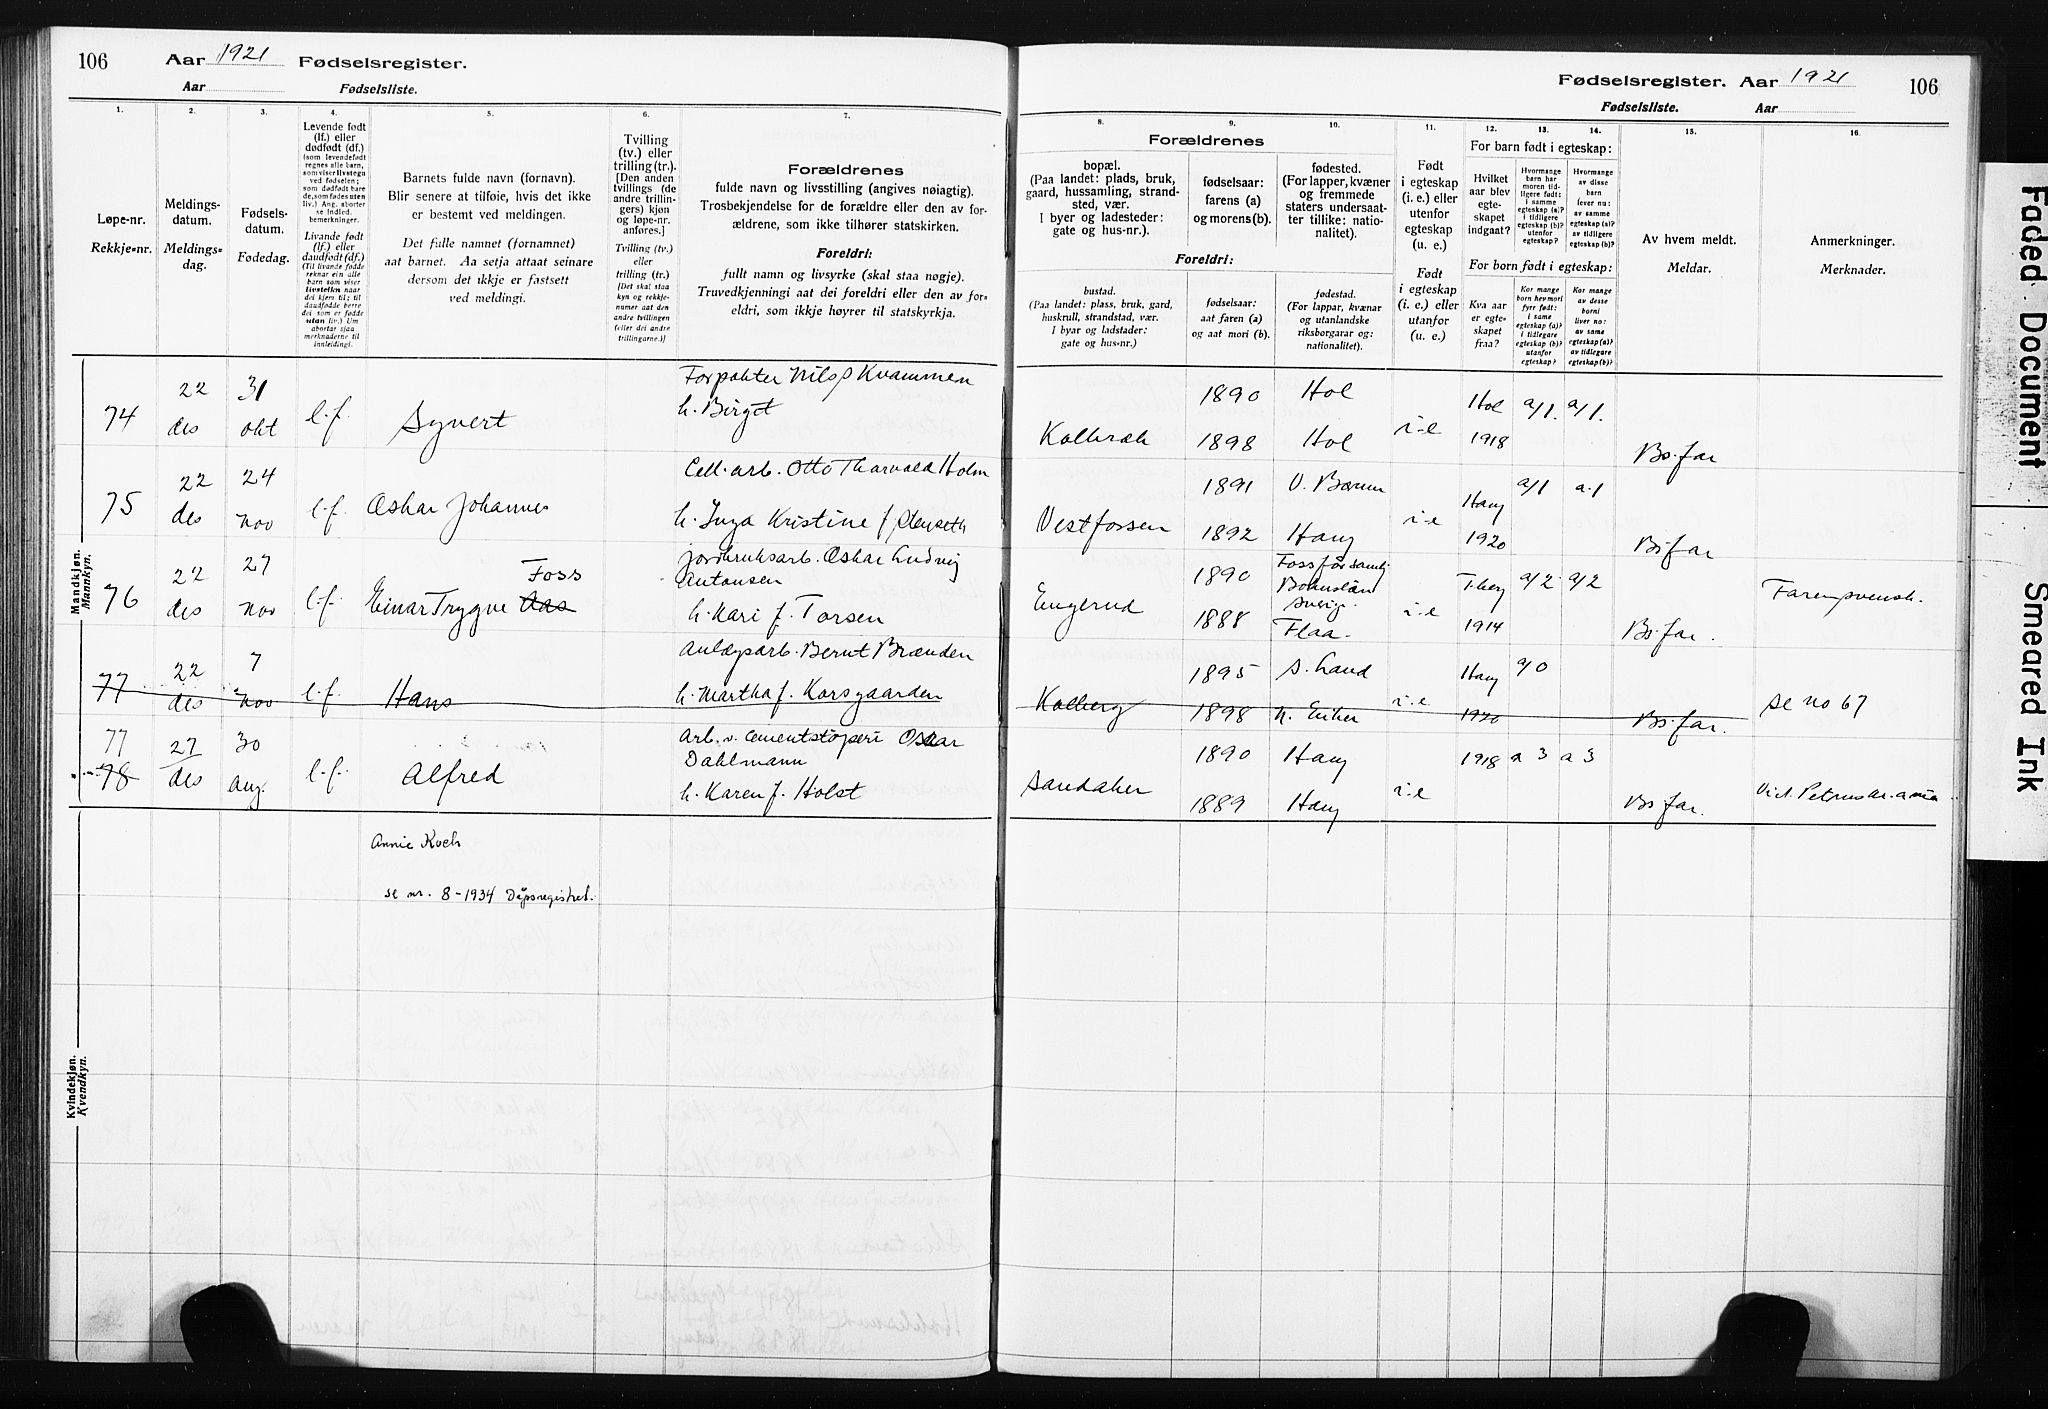 106
Aar 1921 Fødselsregister.
Aar Fødselsliste.
Fødselsregister. Aar 1921
106
Fødselsliste. Aar
1. 2. 3. 4. 5. 6. 7.
Løpe-nr.
Rekkje-nr.
Meldings-
datum.
Meldings-
dag.
Fødsels-
datum.
Fødedag.
Levende født
(lf.) eller
dødfødt (df.)
(som levendefødt
regnes alle barn,
som viser livstegn
ved fødselen;
som dødfødt bare
de, som fødes uten
liv.) Ang. aborter
se indled.
bemerkninger.
Livande født
(lf.) eller
daudfødt (df.)
(Til livande fødde
reknar ein alle
barn som viser
livsteikn naar
dei kjem til; til
daudfødde berre
dei som er fødde
utan liv.) Um
abortar sjaa
merknaderne til
innleidingi.
Barnets fulde navn (fornavn).
Blir senere at tilføie, hvis det ikke
er bestemt ved meldingen.
Det fulle namnet (fornamnet)
aat barnet. Aa setja attaat seinare
dersom det ikkje er fastsett
ved meldingi.
Tvilling
(tv.) eller
trilling (tr.).
[Den anden
tvillings (de
andre trillin-
gers) kjøn
og løpe-nr.
anføres.]
Tvilling (tv.)
eller
trilling (tr.)
[Det skal staa
kyn og rekkje-
numer aat den
andre tvillingen
(eller dei andre
trillingarne.)]
Forældrenes
fulde navn og livsstilling (angives nøiagtig).
Trosbekjendelse for de forældre eller den av for-
ældrene, som ikke tilhører statskirken.
Foreldri:
fullt namn og livsyrke (skal staa nøgje).
Truvedkjenningi aat dei foreldri eller den av for-
eldri, som ikkje høyrer til statskyrkja.
8. 9. 10. 11. 12. 13. 14. 15. 16.
Forældrenes
bopæl.
(Paa landet: plads, bruk,
gaard, hussamling, strand-
sted, vær.
I byer og ladesteder:
gate og hus-nr.).
fødselsaar:
farens (a)
og morens (b).
fødested.
(For lapper, kvæner
og fremmede
staters undersaat-
ter tillike: natio-
nalitet).
Foreldri:
bustad.
(Paa landet: plass, bruk, gard,
huskrull, strandstad, vær.
I byar og ladstader:
gate og hus-nr.)
fødselsaar:
aat faren (a)
og aat mori (b).
fødestad.
(For lappar, kvænar
og utanlandske
riksborgarar og:
nationalitet).
Født
i egteskap
(i. e.) eller
utenfor
egteskap
(u. e.)
Født
i egteskap
(i. e.) eller
utanfor
egteskap
(u. e.)
For barn født i egteskap:
Hvilket
aar blev
egte-
skapet
indgaat?
Hvormange
barn har
moren tid-
ligere født:
i samme
egteskap (a)?
i tidligere
egteskap (b)?
utenfor
egteskap?
Hvormange
av disse
barn
lever nu:
av samme
egteskap (a)?
av tidligere
egteskap (b)?
For born født i egteskap:
Kva aar
er egte-
skapet
fraa?
Kor mange
born hev mori
fyrr født:
i same
egteskap (a)?
i tidlegare
egteskap (b)?
utanfor
egteskap?
Kor mange
av desse
borni
liver no:
av same
egteskap (a)?
av tidlegare
egteskap (b)?
Av hvem meldt.
Meldar.
Anmerkninger.
Merknader.
Mandkjøn.
Mannkyn.
74 22 des 31 okt l.f. Syvert
Forpakter Nils Kvammen
h. Birgit
1890 Hol Hol a/1. a/1.
1898 Hol i-e 1918 Bs. far
75 22 des 24 nov l.f. Oskar Johannes
Cell. arb. Otto Thorvald Holm
h. Inga Kristine f. Stenseth
Vestfossen 1891 Ø. Bærum Haug a/1 a.1
1892 Haug i-e 1920 Bs far
76 22 des 27 nov l.f. Einar Trygve Aas Foss
Jordbruksarb. Oskar Ludvig
Antonsen
h. Kari f. Torsen
Engerud 1890 Foss församl.
Bohuslän
Sverige. a/2 a/2
1888 Flaa. i-e 1914 Bs. far. Faren svensk.
77 22 des 7 nov l.f. Hans
Anlægsarb. Bernt Brænden
h. Martha f. Korsgaarden
Kolberg 1895 S. Land Haug a/0
1898 N. Eiker i-e 1920 Bs. far. se no 67
77
78 27 des 30 aug. l.f. Alfred
Arb. v. cementstøperi Oskar
Dahlmann
h. Karen f. Holst
Sandaker 1890 Haug 1918 a 3 a 3
1889 Haug i-e Bs far.
Annie Koch
se nr. 8-1934 Dåpsregistret.
Kvindekjøn.
Kvendkyn.
Faded Document
Smeared Ink